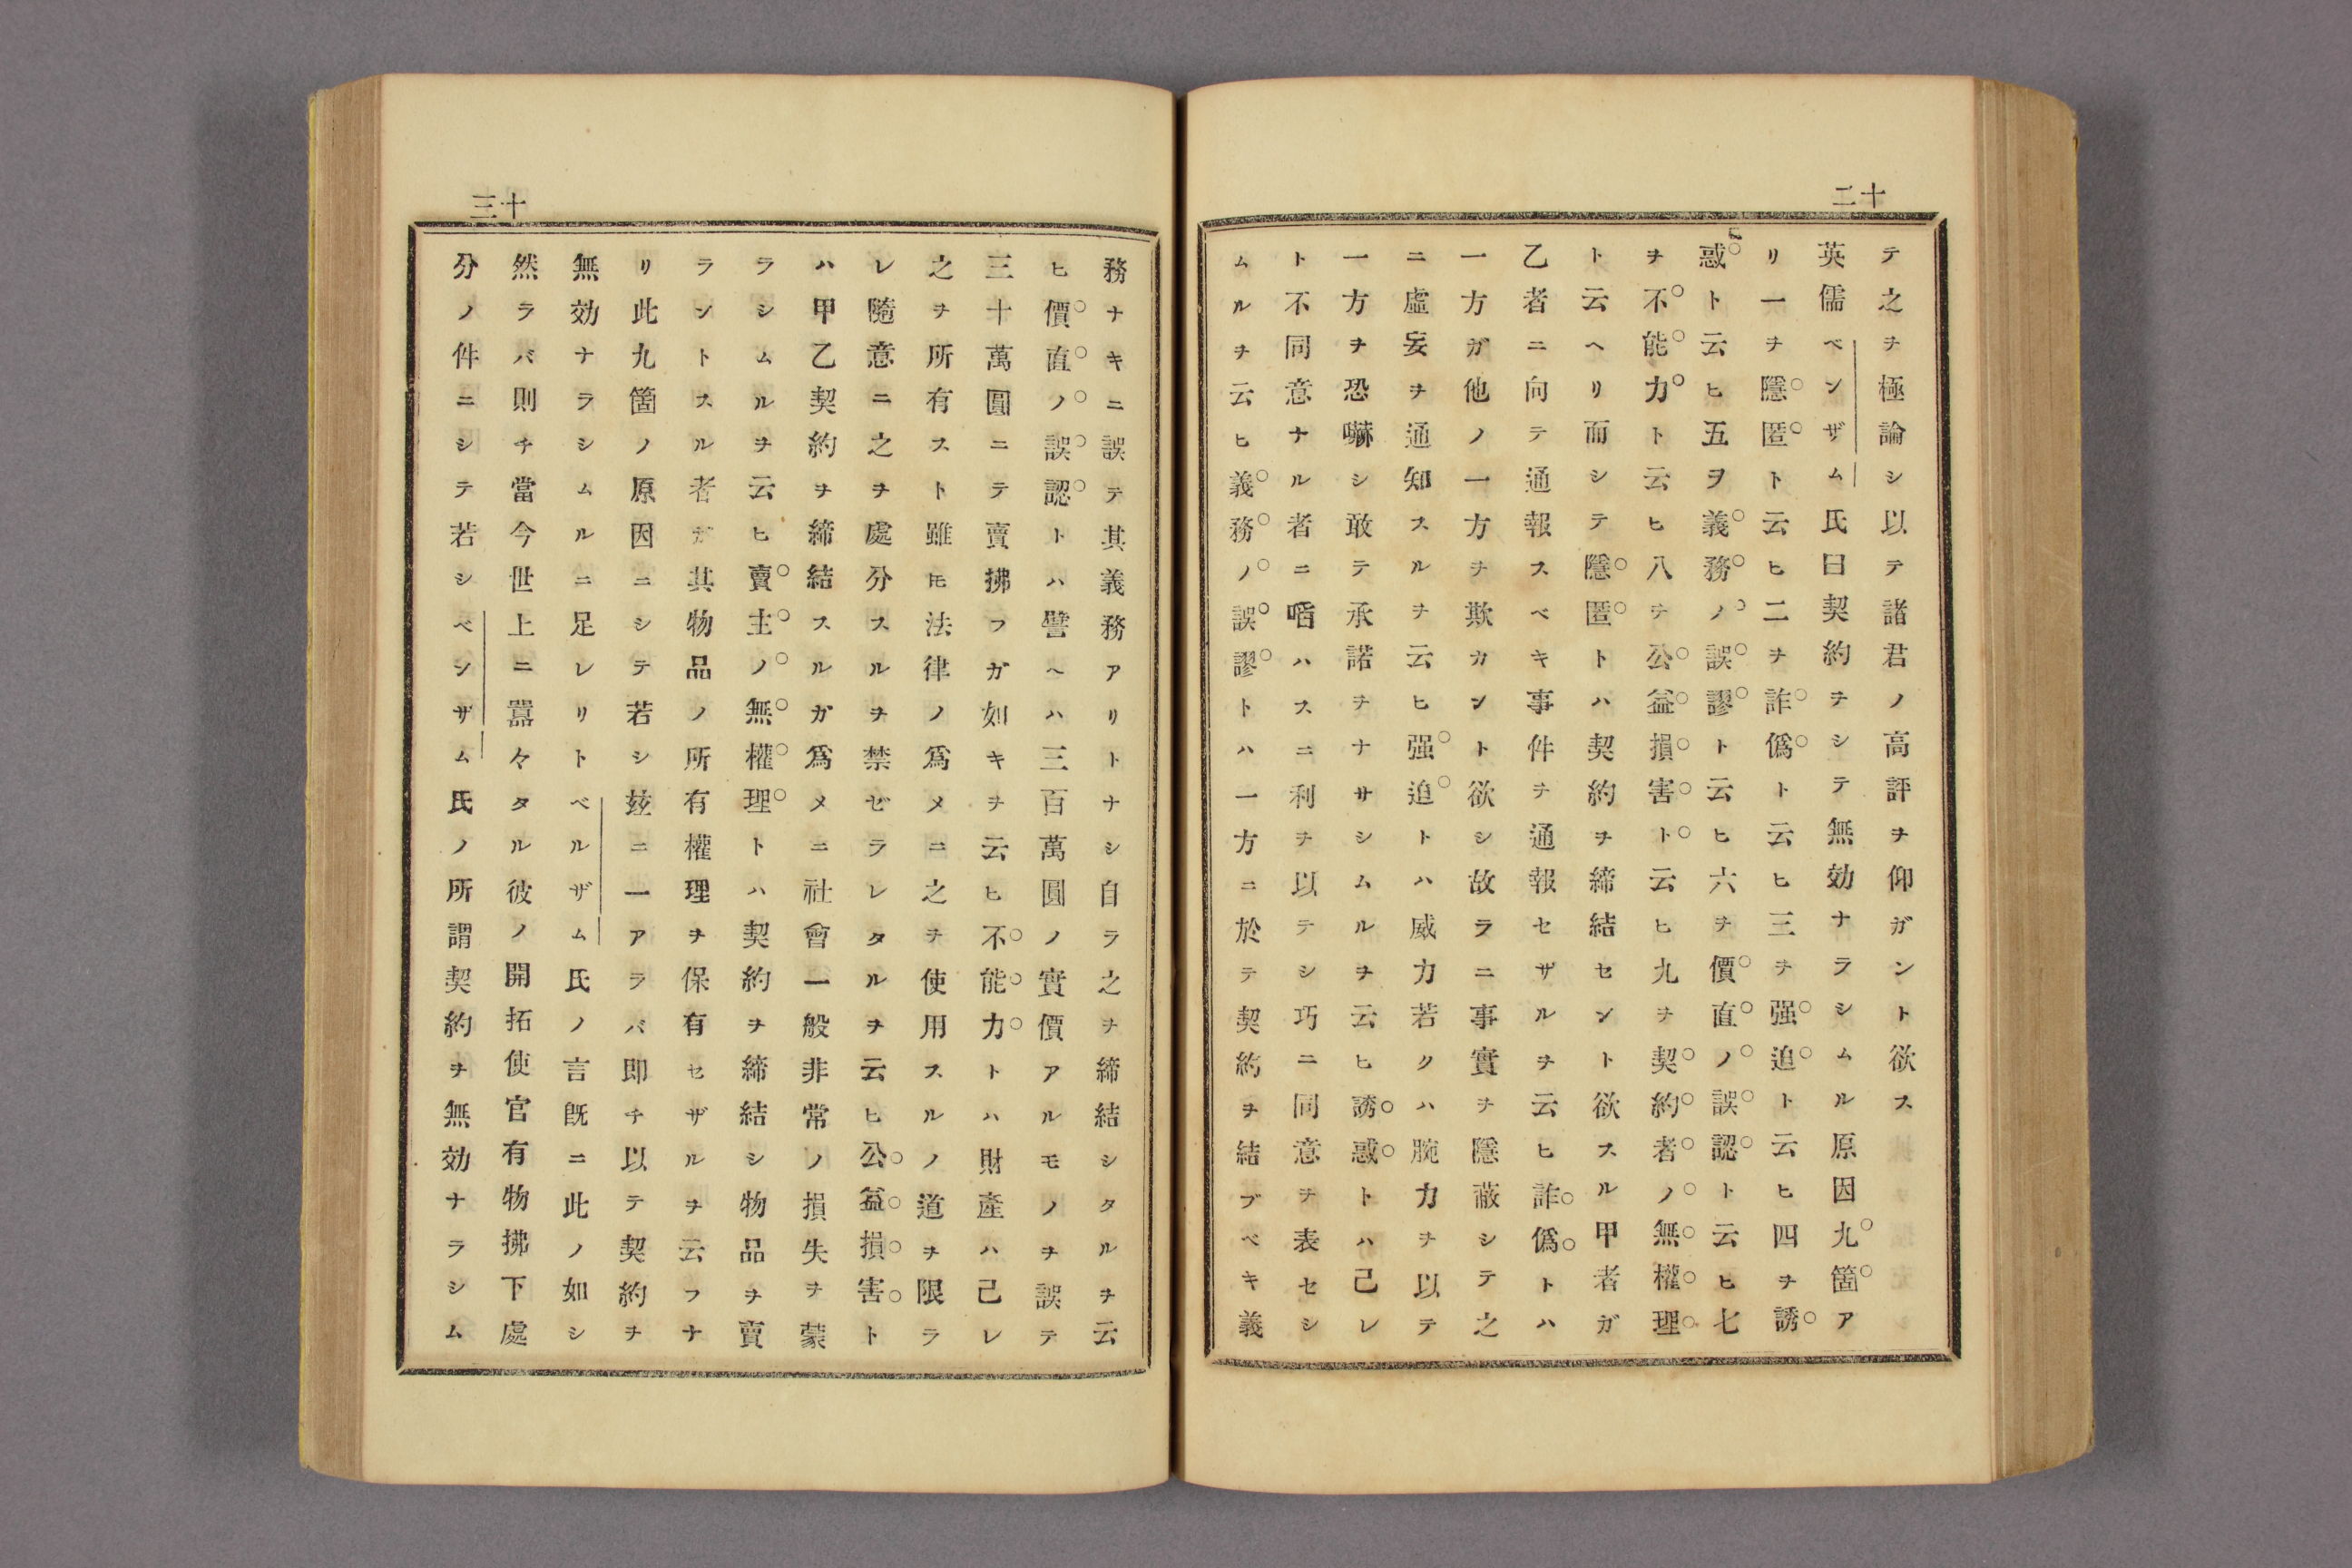 十二
テ之ヲ極論シ以テ諸君ノ高評ヲ仰ガント欲ス
英儒ベンザム氏曰契約ヲシテ無効ナラシムル原因九箇ア
リ一ヲ隱匿ト云ヒ二ヲ詐僞ト云ヒ三ヲ强迫ト云ヒ四ヲ誘
惑ト云ヒ五ヲ義務ノ誤謬ト云ヒ六ヲ價直ノ誤認ト云ヒ七
ヲ不能力ト云ヒ八ヲ公益損害ト云ヒ九ヲ契約者ノ無權理
ト云ヘリ而シテ隱匿トハ契約ヲ締結セント欲スル甲者ガ
乙者ニ向テ通報スベキ事件ヲ通報セザルヲ云ヒ詐僞トハ
一方ガ他ノ一方ヲ欺カント欲シ故ラニ事實ヲ隱蔽シテ之
ニ虛妄ヲ通知スルヲ云ヒ强迫トハ威力若クハ腕力ヲ以テ
一方ヲ恐嚇シ敢テ承諾ヲナサシムルヲ云ヒ誘惑トハ己レ
ト不同意ナル者ニ啗ハスニ利ヲ以テシ巧ニ同意ヲ表セシ
ムルヲ云ヒ義務ノ誤謬トハ一方ニ於テ契約ヲ結ブベキ義
十三
務ナキニ誤テ其義務アリトナシ自ラ之ヲ締結シタルヲ云
ヒ價直ノ誤認トハ譬ヘハ三百萬圓ノ實價アルモノヲ誤テ
三十萬圓ニテ賣拂フガ如キヲ云ヒ不能力トハ財產ハ己レ
之ヲ所有スト雖𪜈法律ノ爲メニ之ヲ使用スルノ道ヲ限ラ
レ隨意ニ之ヲ處分スルヲ禁ゼラレタルヲ云ヒ公益損害ト
ハ甲乙契約ヲ締結スルガ爲メニ社會一般非常ノ損失ヲ蒙
ラシムルヲ云ヒ賣主ノ無權理トハ契約ヲ締結シ物品ヲ賣
ラントスル者ガ其物品ノ所有權理ヲ保有セザルヲ云フナ
リ此九箇ノ原因ニシテ若シ玆ニ一アラバ即チ以テ契約ヲ
無効ナラシムルニ足レリトベルザム氏ノ言旣ニ此ノ如シ
然ラバ則チ當今世上ニ囂々タル彼ノ開拓使官有物拂下處
分ノ件ニシテ若シベンザム氏ノ所謂契約ヲ無効ナラシム